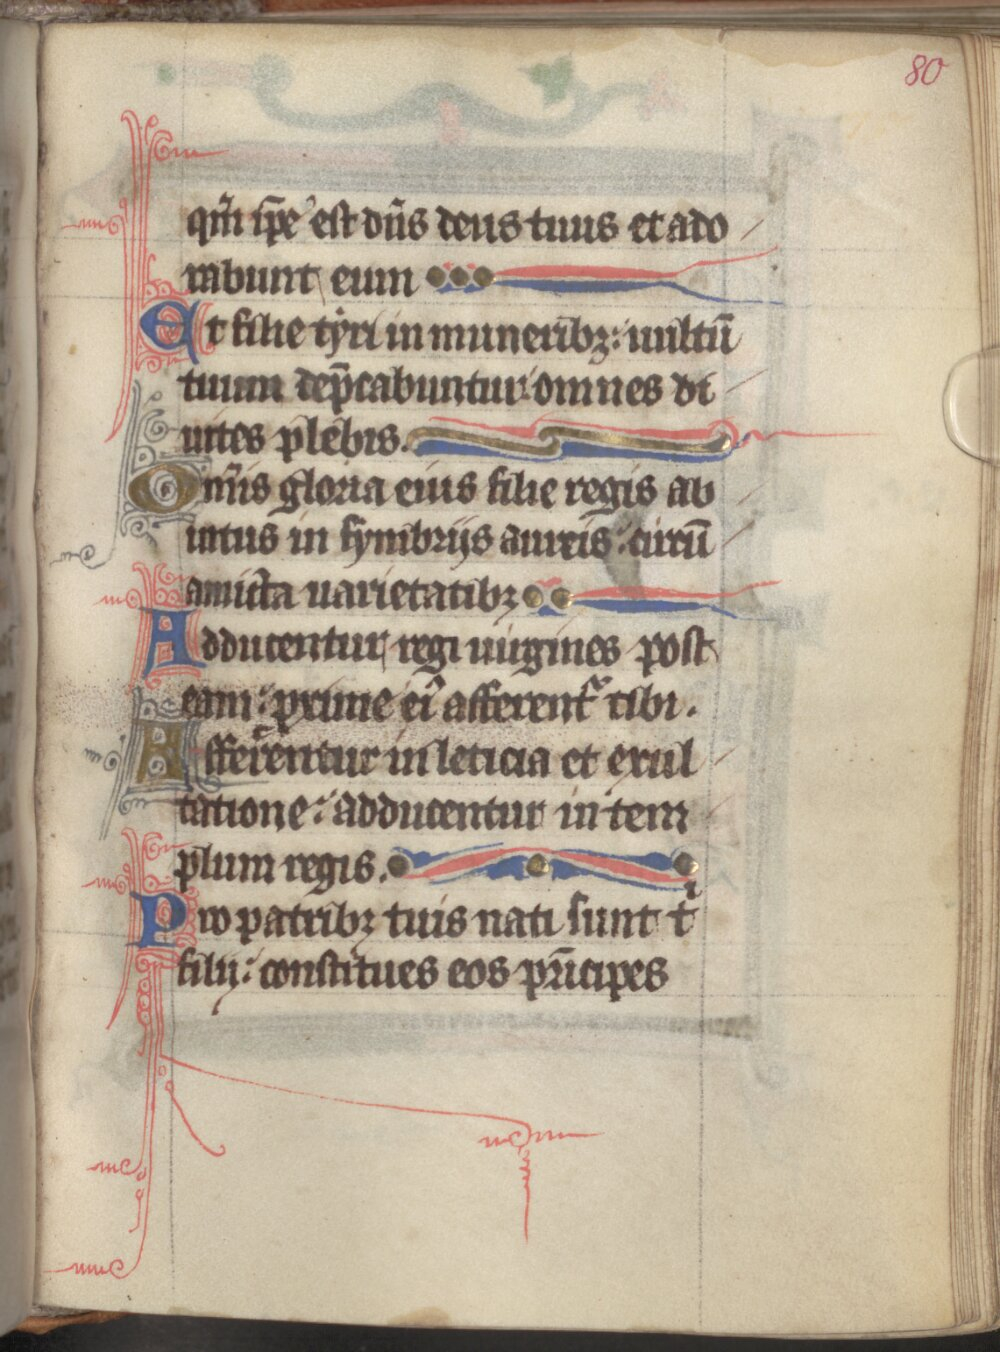 80
qm̄ ip̄e est dn̄s deus tuus et ado
rabunt eum
Et filie tyri in muneribꝫ: uultū
tuum dep̄cabuntur omnes di
uites plebis.
Omīs gloria eius filie regis ab
intus in fymbrijs aureis: circū
amicta uarietatibꝫ
Adducentur regi uirgines post
eam: prime ei᷒ afferent᷑ tibi.
Afferentur in leticia et exul
tatione: adducentur in tem
plum regis.
Pro patribꝫ tuis nati sunt tⁱ
filij: constitues eos pn̄cipes